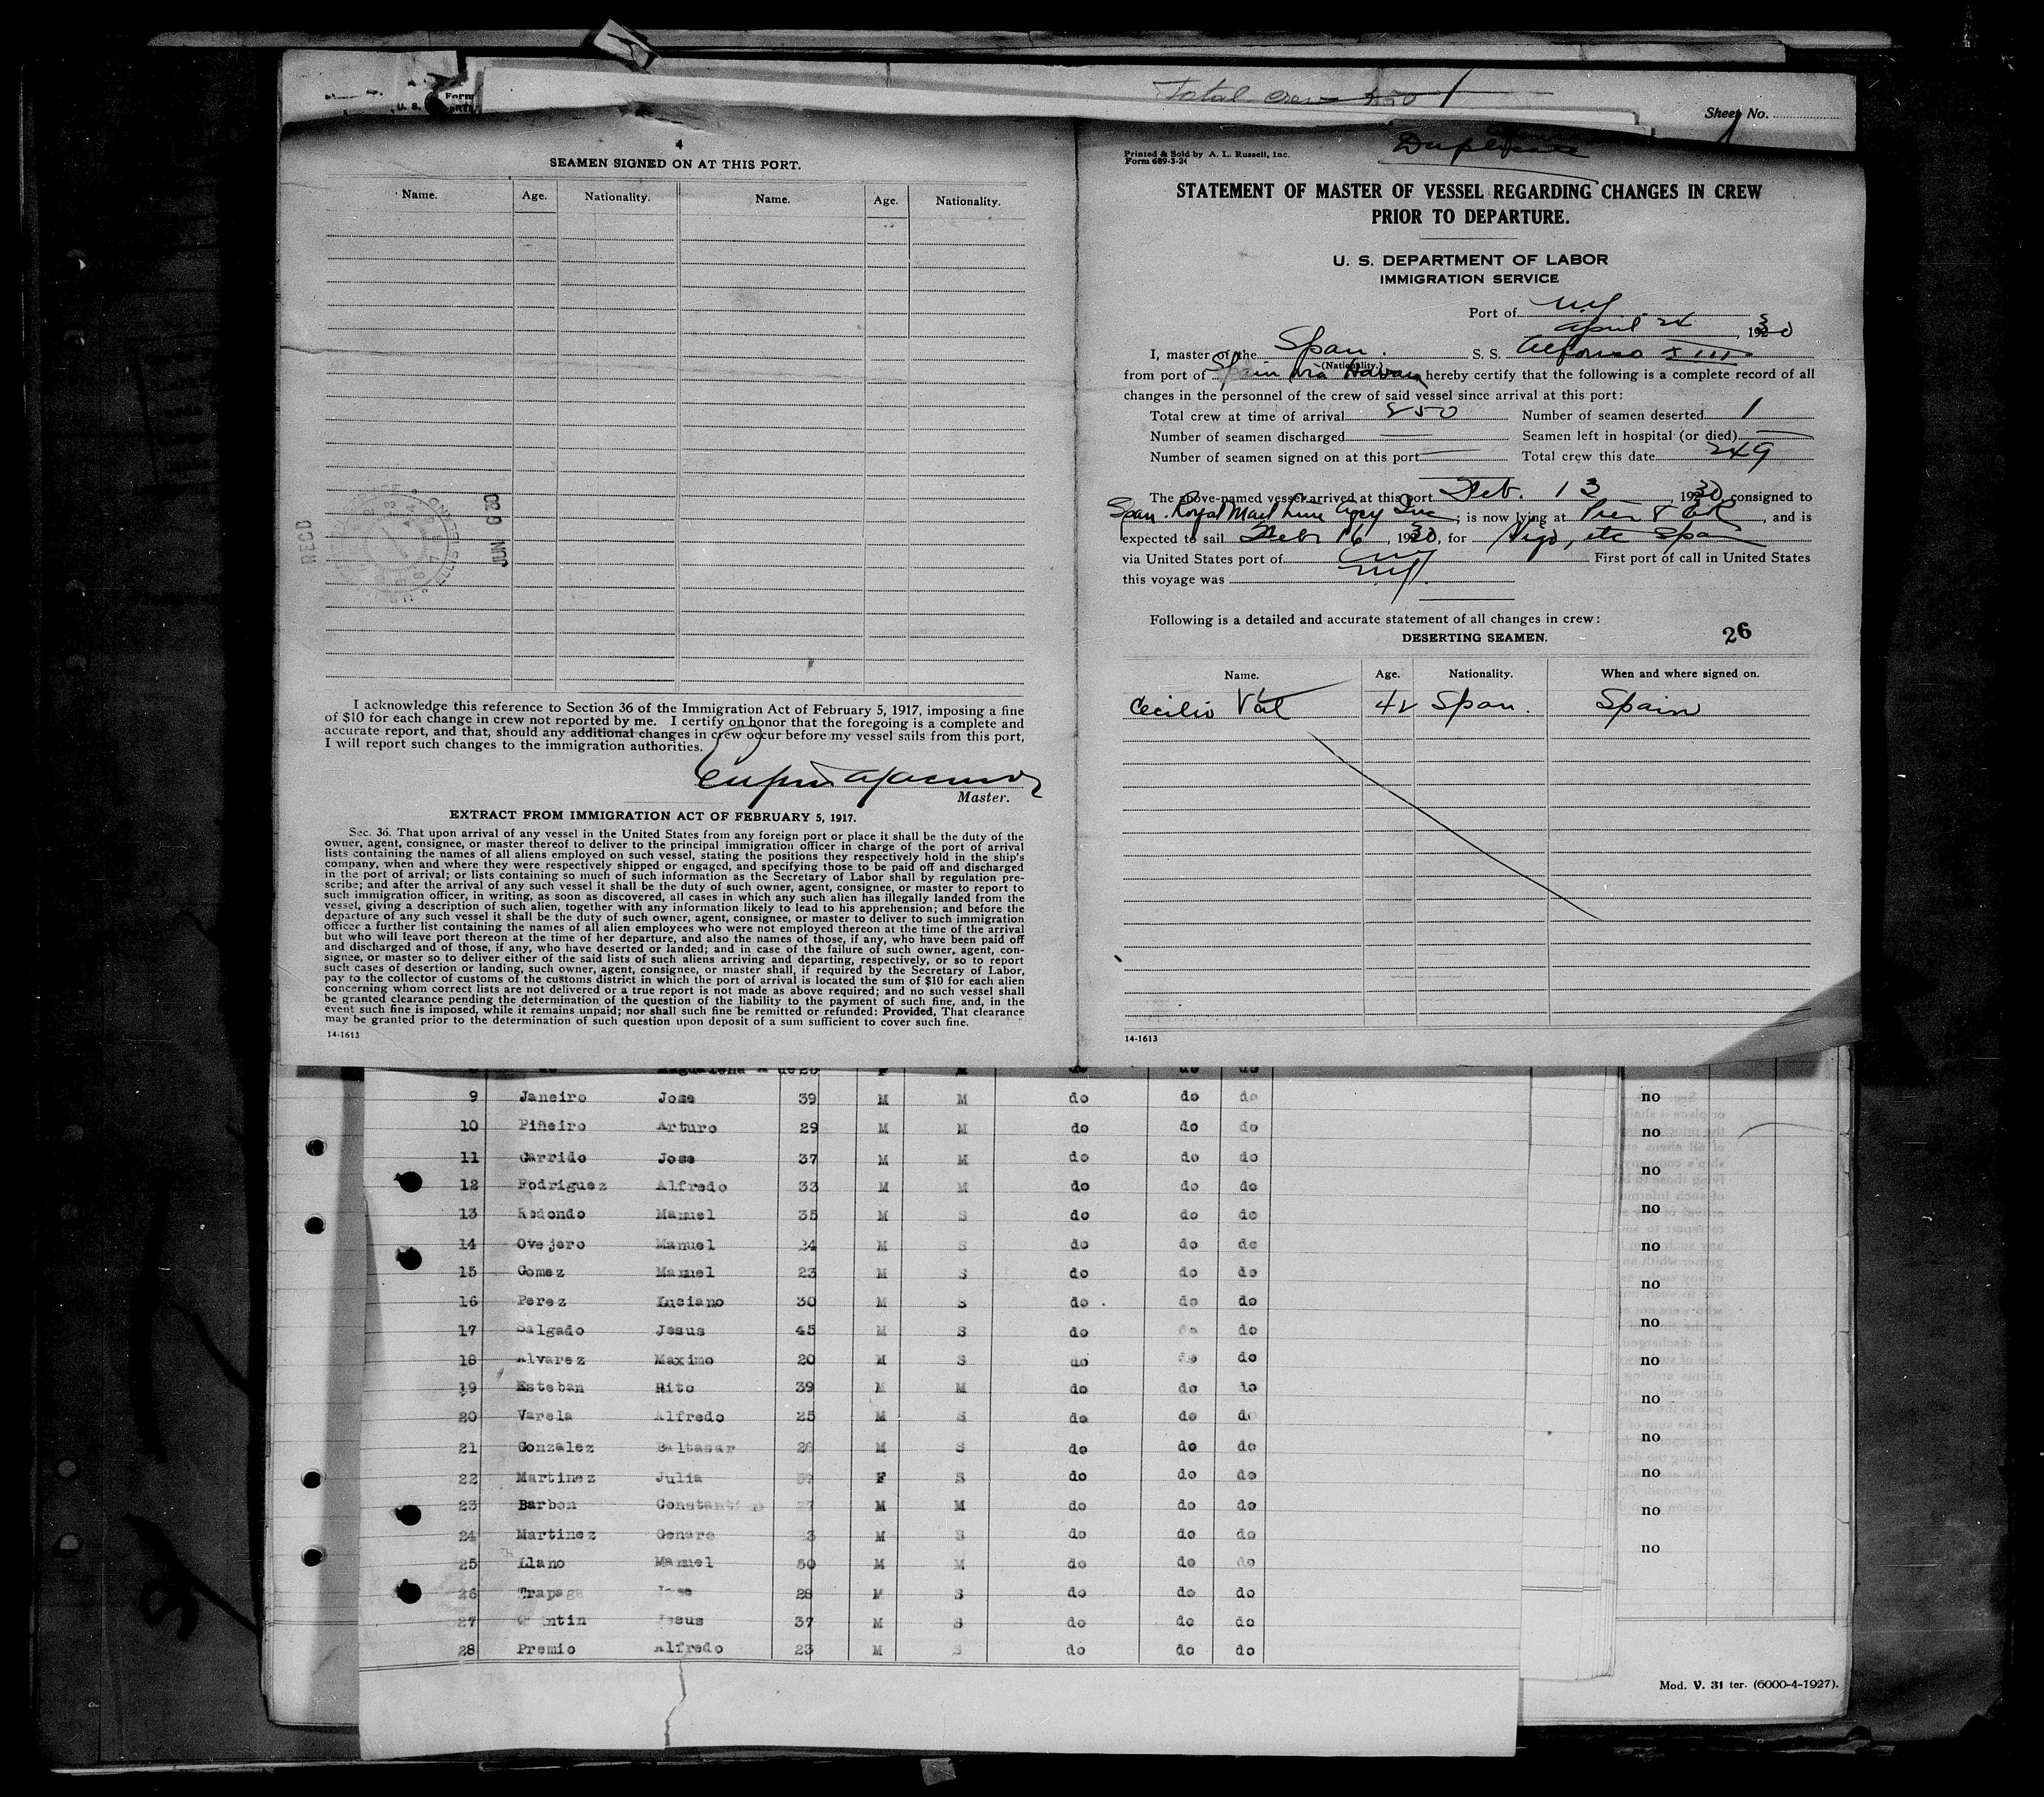 Form
U. S.
Total crew 250 1
Sheet No.
4
SEAMEN SIGNED ON AT THIS PORT.
Name. Age. Nationality. Name. Age. Nationality.
REC'D
JUN 9 30
I acknowledge this reference to Section 36 of the Immigration Act of February 5, 1917, imposing a fine
of $10 for each change in crew not reported by me. I certify on honor that the foregoing is a complete and
accurate report, and that, should any additional changes in crew occur before my vessel sails from this port,
I will report such changes to the immigration authorities.
Master.
EXTRACT FROM IMMIGRATION ACT OF FEBRUARY 5, 1917.
Sec. 36. That upon arrival of any vessel in the United States from any foreign port or place it shall be the duty of the
owner, agent, consignee, or master thereof to deliver to the principal immigration officer in charge of the port of arrival
lists containing the names of all aliens employed on such vessel, stating the positions they respectively hold in the ship's
company, when and where they were respectively shipped or engaged, and specifying those to be paid off and discharged
in the port of arrival; or lists containing so much of such information as the Secretary of Labor shall by regulation pre-
scribe; and after the arrival of any such vessel it shall be the duty of such owner, agent, consignee, or master to report to
such immigration officer, in writing, as soon as discovered, all cases in which any such alien has illegally landed from the
vessel, giving a description of such alien, together with any information likely to lead to his apprehension; and before the
departure of any such vessel it shall be the duty of such owner, agent, consignee, or master to deliver to such immigration
officer a further list containing the names of all alien employees who were not employed thereon at the time of the arrival
but who will leave port thereon at the time of her departure, and also the names of those, if any, who have been paid off
and discharged and of those, if any, who have deserted or landed; and in case of the failure of such owner, agent, con-
signee, or master so to deliver either of the said lists of such aliens arriving and departing, respectively, or so to report
such cases of desertion or landing, such owner, agent, consignee, or master shall, if required by the Secretary of Labor,
pay to the collector of customs of the customs district in which the port of arrival is located the sum of $10 for each alien
concerning whom correct lists are not delivered or a true report is not made as above required; and no such vessel shall
be granted clearance pending the determination of the question of the liability to the payment of such fine, and, in the
event such fine is imposed, while it remains unpaid; nor shall such fine be remitted or refunded: Provided, That clearance
may be granted prior to the determination of such question upon deposit of a sum sufficient to cover such fine.
14-1613
Printed & Sold by A. L. Russell, Inc.
Form 689-3-24
Duplicate
STATEMENT OF MASTER OF VESSEL REGARDING CHANGES IN CREW
PRIOR TO DEPARTURE.
U. S. DEPARTMENT OF LABOR
IMMIGRATION SERVICE
Port of N.Y.
April 24, 1930
I, master of the Span. S. S. Alfonso XIII
(Nationality.)
from port of Spain via Havana hereby certify that the following is a complete record of all
changes in the personnel of the crew of said vessel since arrival at this port:
Total crew at time of arrival 250 Number of seamen deserted 1
Number of seamen discharged — Seamen left in hospital (or died) —
Number of seamen signed on at this port — Total crew this date 249
The above-named vessel arrived at this port Feb. 13, 1930, consigned to
Span. Royal Mail Line Agcy Inc; is now lying at Pier 8 E R, and is
expected to sail Feb 16, 1930, for Vigo, etc Spain
via United States port of N.Y. First port of call in United States
this voyage was N.Y.
Following is a detailed and accurate statement of all changes in crew:
DESERTING SEAMEN.
26
Name. Age. Nationality. When and where signed on.
Cecilio Val 42 Span. Spain
14-1613
9 Janeiro Jose 39 M M do do do no
10 Piñeiro Arturo 29 M M do do do no
11 Garrido Jose 37 M M do do do no
12 Rodriguez Alfredo 33 M M do do do no
13 Redondo Manuel 35 M S do do do no
14 Ovejero Manuel 24 M S do do do no
15 Gomez Manuel 23 M S do do do no
16 Perez Luciano 30 M S do do do no
17 Salgado Jesus 45 M S do do do no
18 Alvarez Maximo 20 M S do do do no
19 Esteban Rito 39 M M do do do no
20 Varela Alfredo 25 M S do do do no
21 Gonzalez Baltasar M S do do do no
22 Martinez Julia F S do do do no
23 Barbon Constantino 27 M M do do do
24 Martinez Genaro M S do do do
25 Llano Manuel 50 M M do do do
26 Trapaga Jose 28 M S do do do
27 Jesus 37 M S do do do
28 Premio Alfredo 23 M S do do do
Mod. V. 31 ter. (6000-4-1927).